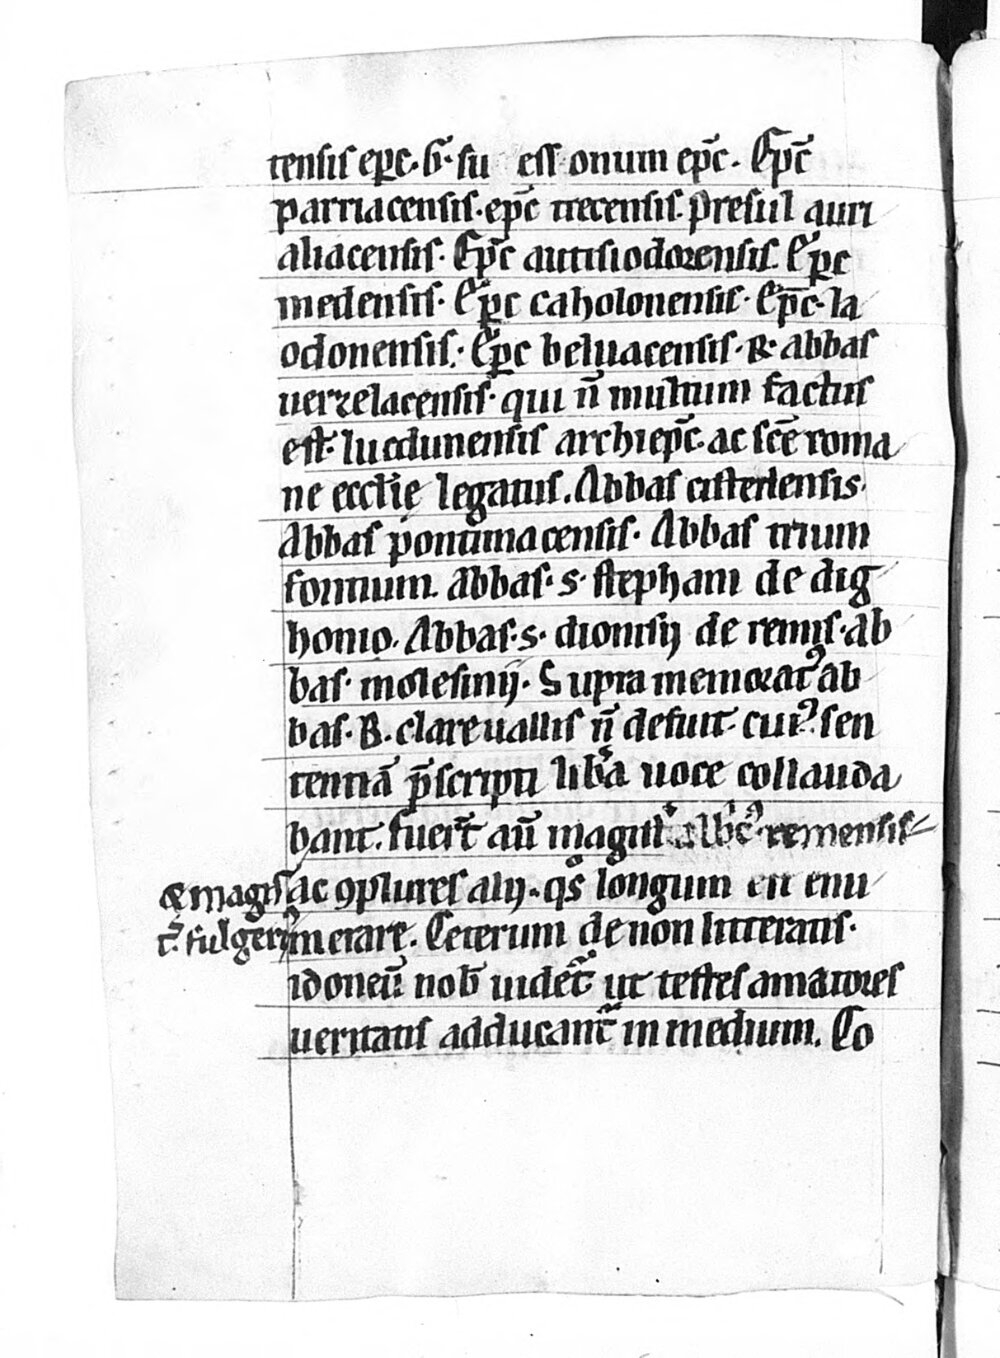 tensis ep̅c. G. su ess onum ep̅c. Ep̅c
parriacensis. ep̅c trecensis. presul auri
aliacensis. Ep̅c autisiodorensis. Ep̅c
meldensis. Ep̅c catholonensis. Ep̅c. la
odonensis. Ep̅c beluacensis. R. abbas
uerzelacensis. qui n̅ multum factus
est. lucdunensis archiep̅c. ac sc̅e roma
ne eccl̅ie legatus. Abbas cisterlensis.
Abbas pontiniacensis. Abbas trium
fontium. abbas. s. stephani de dig
honio. Abbas. s. dionisij de remis. ab
bas. molesinij. Supra memorat᷒ ab
bas. B. clareuallis n̅ defuit. cui᷒. sen
tentia̅ p̅scripti lib̅a uoce collauda
bant. fuer̅t au̅ magist̅ albic᷒. remensis
& magis ac ꝯplures alij. qs̅ longum enu
t̅. fulgeri᷒ merare. Ceterum de non litteratis.
idoneu̅ nob̅ uidet̅ ut testes amatores
ueritatis adducant̅ in medium. Co